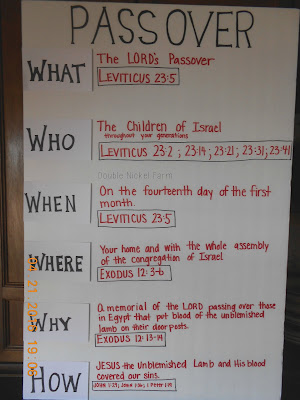 PASSOVER
WHAT
The LORD's Passover
LEVITICUS 23:5
WHO
The Children of Israel
throughout your generations
LEVITICUS 23:2 ; 23:14 ; 23:21 ; 23:31; 23:41
Double Nickel Farm
WHEN
On the fourteenth day of the first
month.
LEVITICUS 23:5
WHERE
Your home and with the whole assembly
of the congregation of Israel
EXODUS 12:3-6
WHY
A memorial of the LORD passing over those
in Egypt that put blood of the unblemished
lamb on their doorposts.
EXODUS 12:13-14
HOW
JESUS-the Unblemished Lamb and His blood
covered our sins.
JOHN 1:29; 1 Peter 1:19